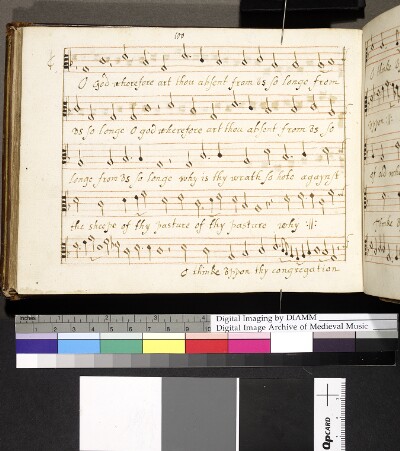 100
O god wherefore art thou absent from vs so longe from
vs so longe O god wherefore art thou absent from vs so
longe from vs so longe why is thy wrath so hote agaynst
the sheepe of thy pasture of thy pasture why :||:
O thinke vppon thy congregation
inches 1 2 3 4
Digital Imaging by DIAMM
Digital Image Archive of Medieval Music
QPCARD